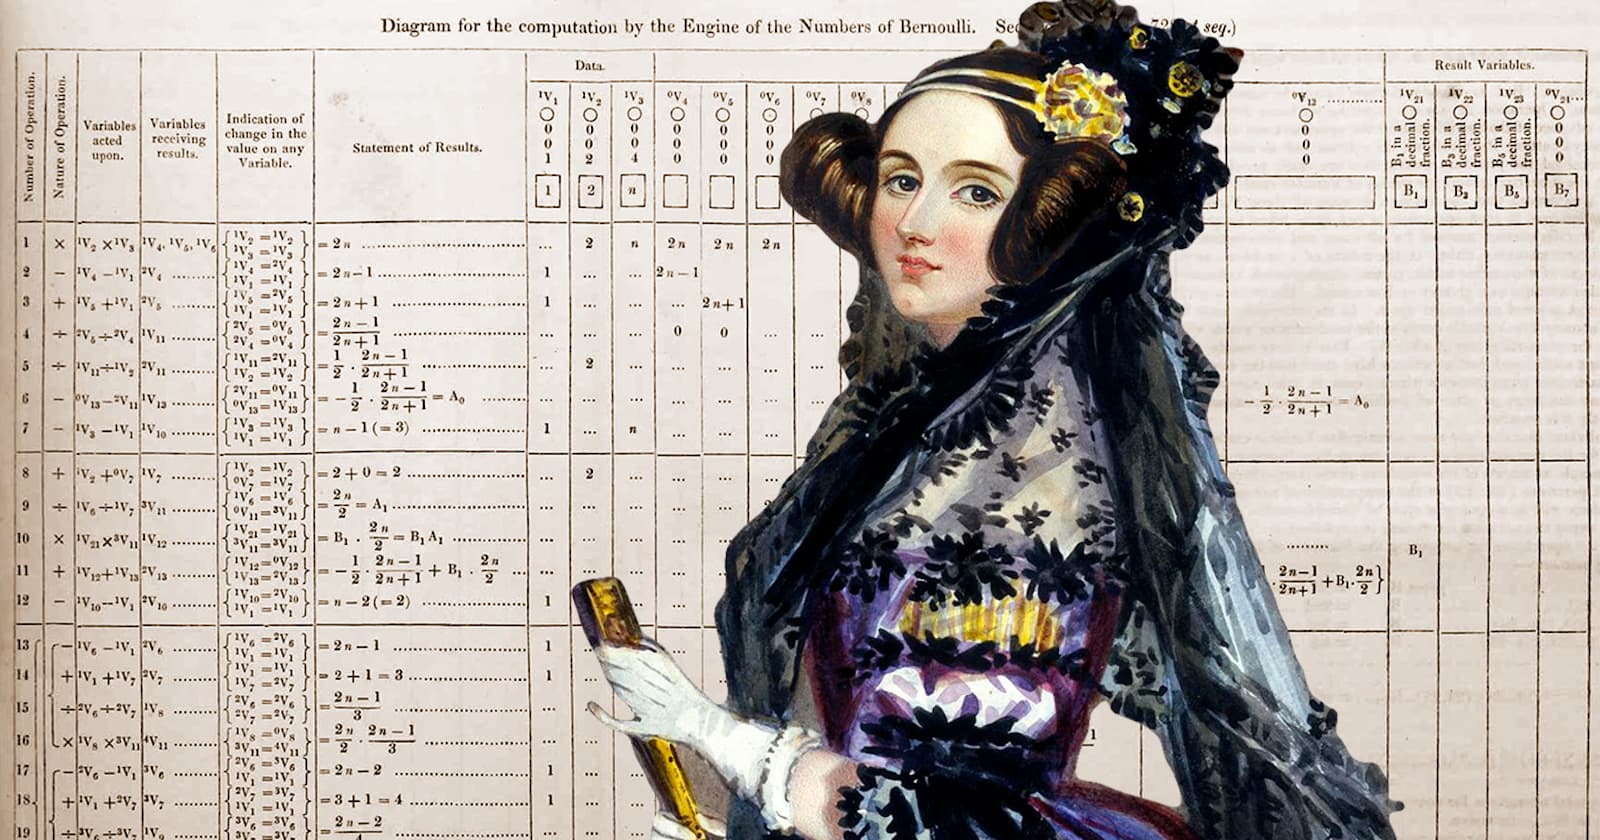 Diagram for the computation by the Engine of the Numbers of Bernoulli. seq.)
Number of Operation.
Nature of Operation.
Variables acted upon.
Variables receiving results.
Indication of change in the value on any Variable.
Statement of Results.
Data.
Result Variables.
¹V₁ ¹V₂ ¹V₃ ⁰V₄ ⁰V₅ ⁰V₆ ⁰V₇ ⁰V₈ ⁰V₁₃ ............ ¹V₂₁ ¹V₂₂ ¹V₂₃ ⁰V₂₄...
○ ○ ○ ○ ○ ○ ○ ○ ○ ○ ○
0 0 0 0 0 0 0 0
0 0 0 0 0 0 0 0
1 2 4 0 0 0 0 0
B₁ in a decimal fraction.
B₃ in a decimal fraction.
B₅ in a decimal fraction.
1 2 n B₁ B₃ B₅ B₇
1 × ¹V₂ × ¹V₃ ¹V₄, ¹V₅, ¹V₆ {¹V₂ = ¹V₂ ¹V₃ = ¹V₃} = 2n ... 2 n 2n 2n 2n
2 − ¹V₄ − ¹V₁ ²V₄ {¹V₄ = ²V₄ ¹V₁ = ¹V₁} = 2n − 1 1 ... ... 2n − 1
3 + ¹V₅ + ¹V₁ ²V₅ {¹V₅ = ²V₅ ¹V₁ = ¹V₁} = 2n + 1 1 ... ... ... 2n + 1
4 ÷ ²V₅ ÷ ²V₄ ¹V₁₁ {²V₅ = ⁰V₅ ²V₄ = ⁰V₄} = (2n − 1)/(2n + 1) ... ... ... 0 0 ... ...
5 ÷ ¹V₁₁ ÷ ¹V₂ ²V₁₁ {¹V₁₁ = ²V₁₁ ¹V₂ = ¹V₂} = 1/2 · (2n − 1)/(2n + 1) ... 2 ... ... ... ... ...
6 − ⁰V₁₃ − ²V₁₁ ¹V₁₃ {²V₁₁ = ⁰V₁₁ ⁰V₁₃ = ¹V₁₃} = − 1/2 · (2n − 1)/(2n + 1) = A₀ ... ... ... ... ... ... ... − 1/2 · (2n − 1)/(2n + 1) = A₀
7 − ¹V₃ − ¹V₁ ¹V₁₀ {¹V₃ = ¹V₃ ¹V₁ = ¹V₁} = n − 1 (= 3) 1 ... n ... ... ...
8 + ¹V₂ + ⁰V₇ ¹V₇ {¹V₂ = ¹V₂ ⁰V₇ = ¹V₇} = 2 + 0 = 2 ... 2 ... ... ...
9 ÷ ¹V₆ ÷ ¹V₇ ³V₁₁ {¹V₆ = ¹V₆ ⁰V₁₁ = ³V₁₁} = 2n/2 = A₁ ... ... ... ... ...
10 × ¹V₂₁ × ³V₁₁ ¹V₁₂ {¹V₂₁ = ¹V₂₁ ³V₁₁ = ³V₁₁} = B₁ · 2n/2 = B₁A₁ ... ... ... ... ... B₁
11 + ¹V₁₂ + ¹V₁₃ ²V₁₃ {¹V₁₂ = ⁰V₁₂ ¹V₁₃ = ²V₁₃} = − 1/2 · (2n − 1)/(2n + 1) + B₁ · 2n/2 ... ... ... ... · (2n − 1)/(2n + 1) + B₁ · 2n/2}
12 − ¹V₁₀ − ¹V₁ ²V₁₀ {¹V₁₀ = ²V₁₀ ¹V₁ = ¹V₁} = n − 2 (= 2) 1 ... ... ...
13 − ¹V₆ − ¹V₁ ²V₆ {¹V₆ = ²V₆ ¹V₁ = ¹V₁} = 2n − 1 1
14 + ¹V₁ + ¹V₇ ²V₇ {¹V₁ = ¹V₁ ¹V₇ = ²V₇} = 2 + 1 = 3 1
15 ÷ ²V₆ ÷ ²V₇ ¹V₈ {²V₆ = ²V₆ ²V₇ = ²V₇} = (2n − 1)/3 ... ...
16 × ¹V₈ × ³V₁₁ ⁴V₁₁ {¹V₈ = ⁰V₈ ³V₁₁ = ⁴V₁₁} = 2n/2 · (2n − 1)/3 ... ... ...
17 − ²V₆ − ¹V₁ ³V₆ {²V₆ = ³V₆ ¹V₁ = ¹V₁} = 2n − 2 1 ...
18 + ¹V₁ + ²V₇ ³V₇ {²V₇ = ³V₇ ¹V₁ = ¹V₁} = 3 + 1 = 4 1 ...
19 ÷ ³V₆ ÷ ³V₇ {³V₆ = ³V₆ = 2n − 2